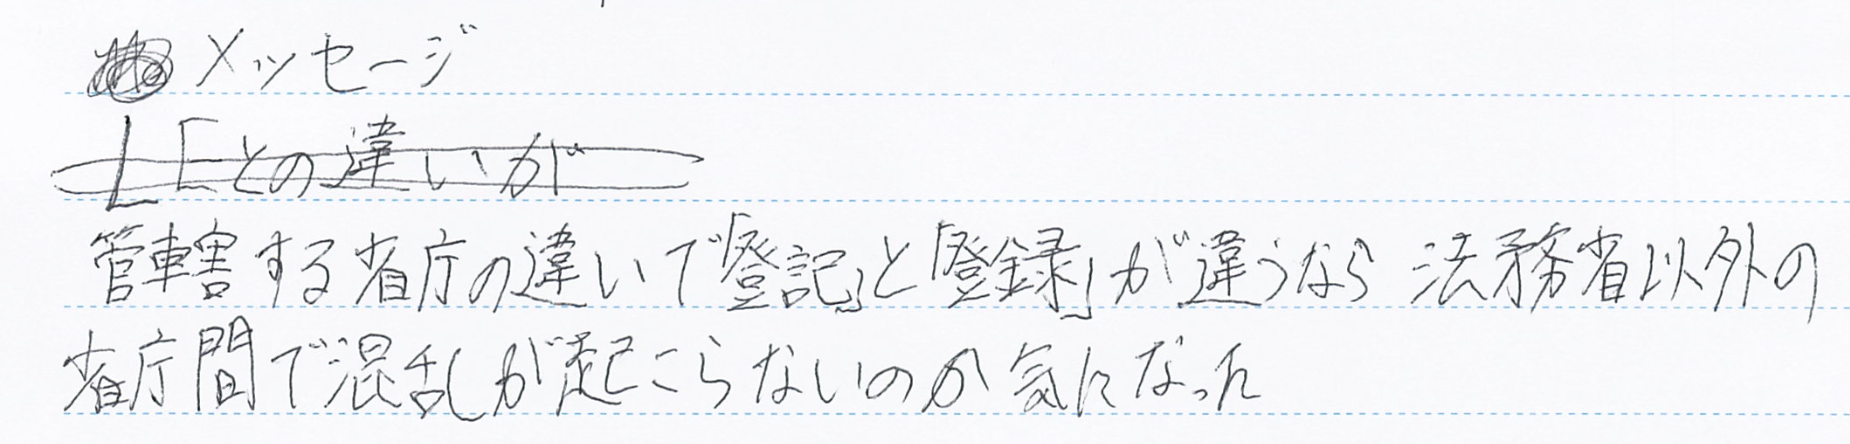 メッセージ
LEとの違いが
管轄する省庁の違いで「登記」と「登録」が違うなら 法務省以外の
省庁間で混乱が起こらないのか気になった